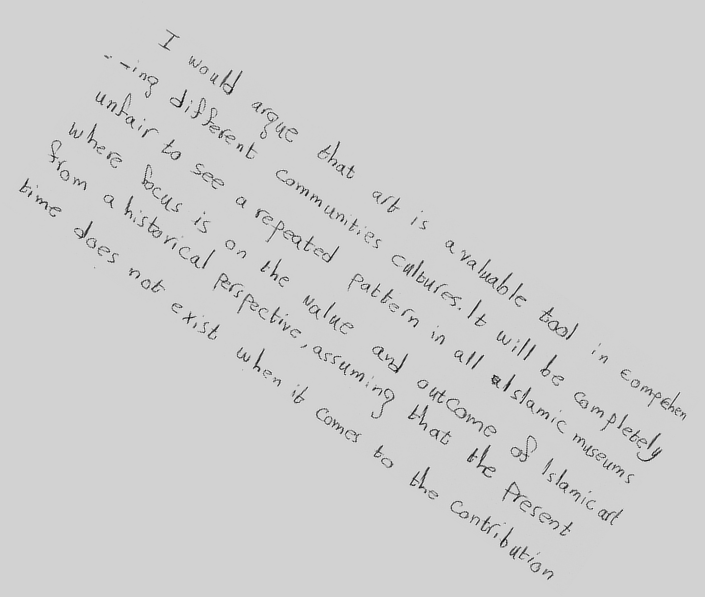 I would argue that art is a valuable tool in compehen
--ing different communities cultures. It will be completely
unfair to see a repeated pattern in all Islamic museums
where focus is on the value and outcome of Islamic art
from a historical perspective, assuming that the Present
time does not exist when it comes to the contribution